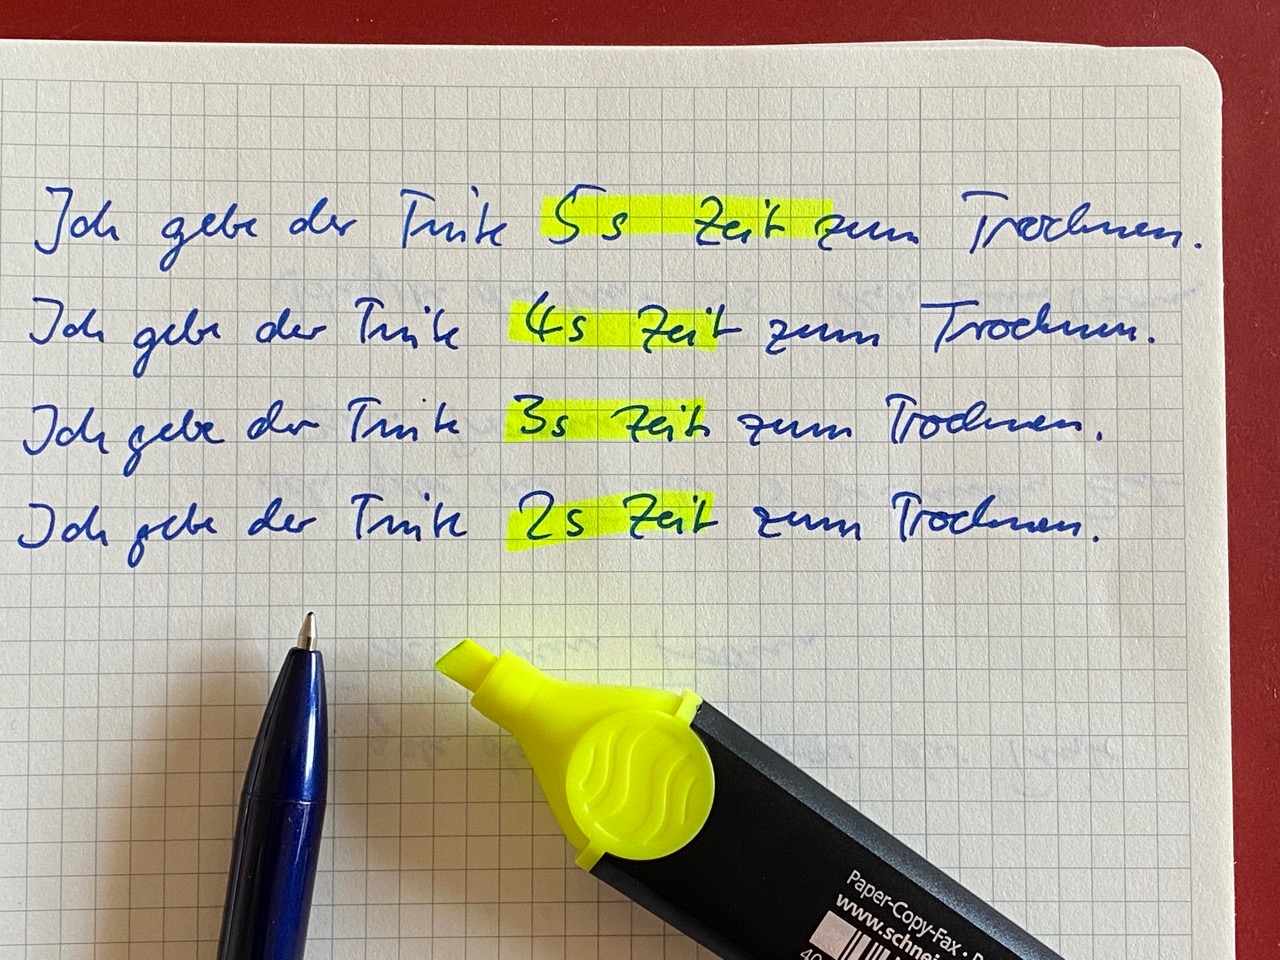 Ich gebe der Tinte 5s Zeit zum Trocknen.
Ich gebe der Tinte 4s Zeit zum Trocknen.
Ich gebe der Tinte 3s Zeit zum Trocknen.
Ich gebe der Tinte 2s Zeit zum Trocknen.
Paper-Copy-Fax ·
www.schnei
40